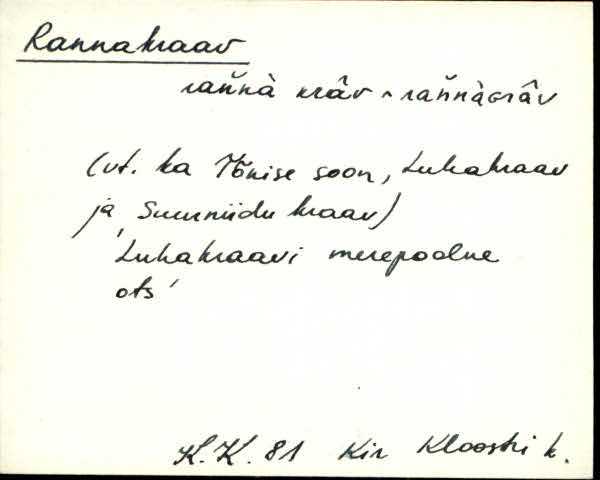 Rannakraav
rañ̆nà krâv ~ rañ̆nàɢrâv
(vt. ka Tõnise soon, Luhakraav
ja Suurniidu kraav)
'Luhakraavi merepoolne
ots'
K.K. 81 Kir Kloostri k.